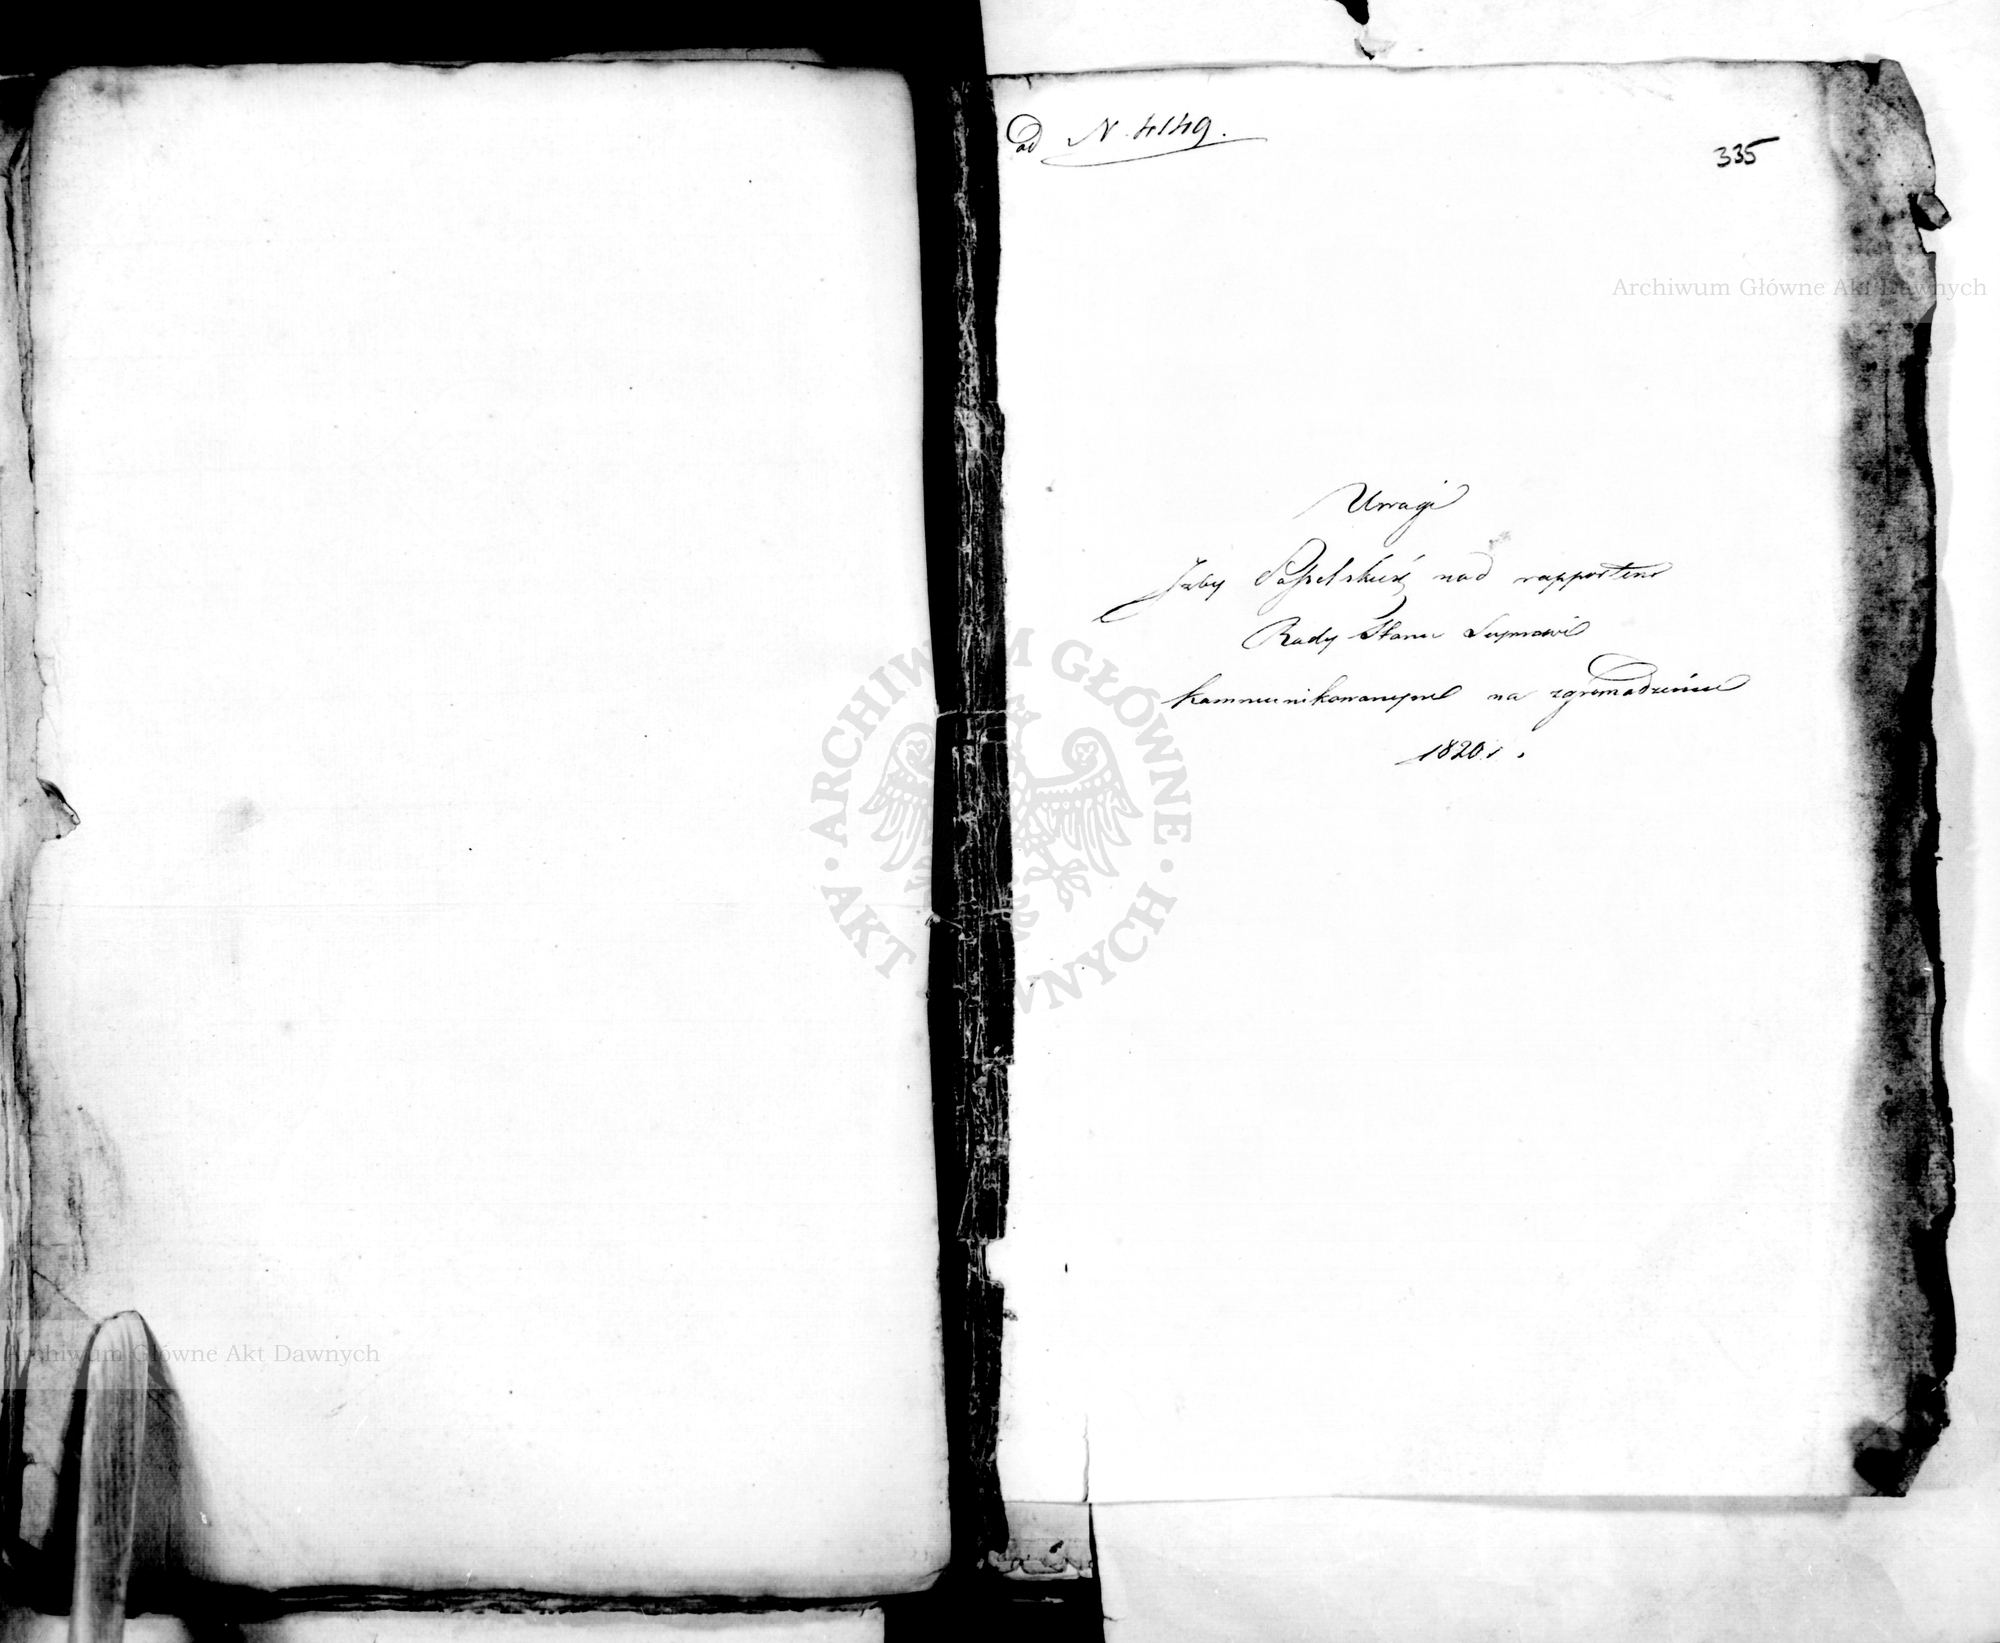 ad N. 4149.
335
Archiwum Główne Akt Dawnych
Uwagi
Izby Poselskiej nad rapportem
Rady Stanu Seymowi
kommunikowanym na zgromadzeniu
1820 r.
ARCHIWUM GŁÓWNE AKT DAWNYCH
Archiwum Główne Akt Dawnych